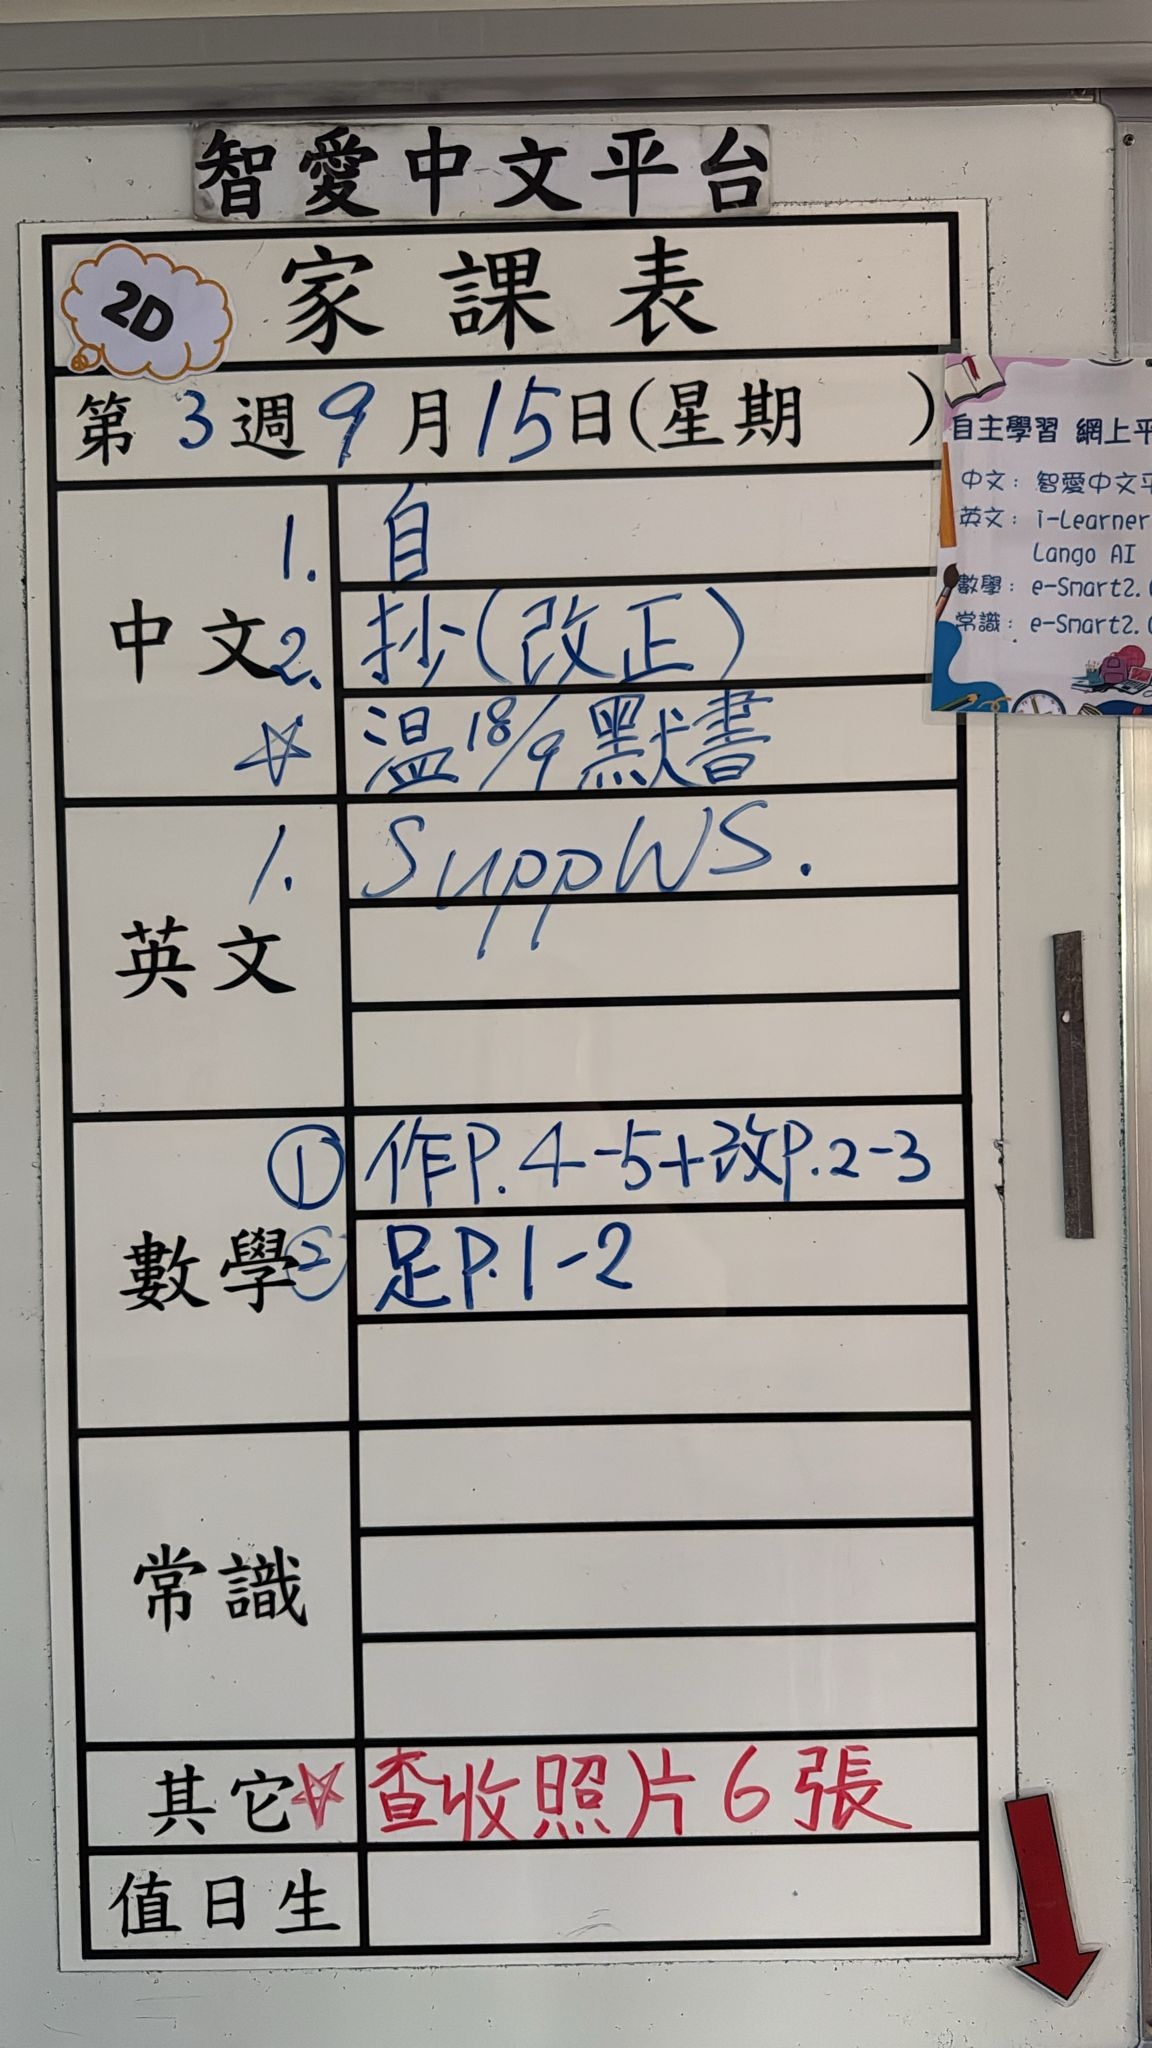 智愛中文平台
2D
家課表
第3週9月15日(星期 )
中文
1. 自
2. 抄(改正)
☆ 溫18/9默書
英文
1. Supp WS.
數學
① 作P.4-5+改P.2-3
② 足P.1-2
常識
其它 ☆ 查收照片6張
值日生
自主學習 網上平
中文: 智愛中文平
英文: i-Learner
Lango AI
數學: e-Smart2.0
常識: e-Smart2.0